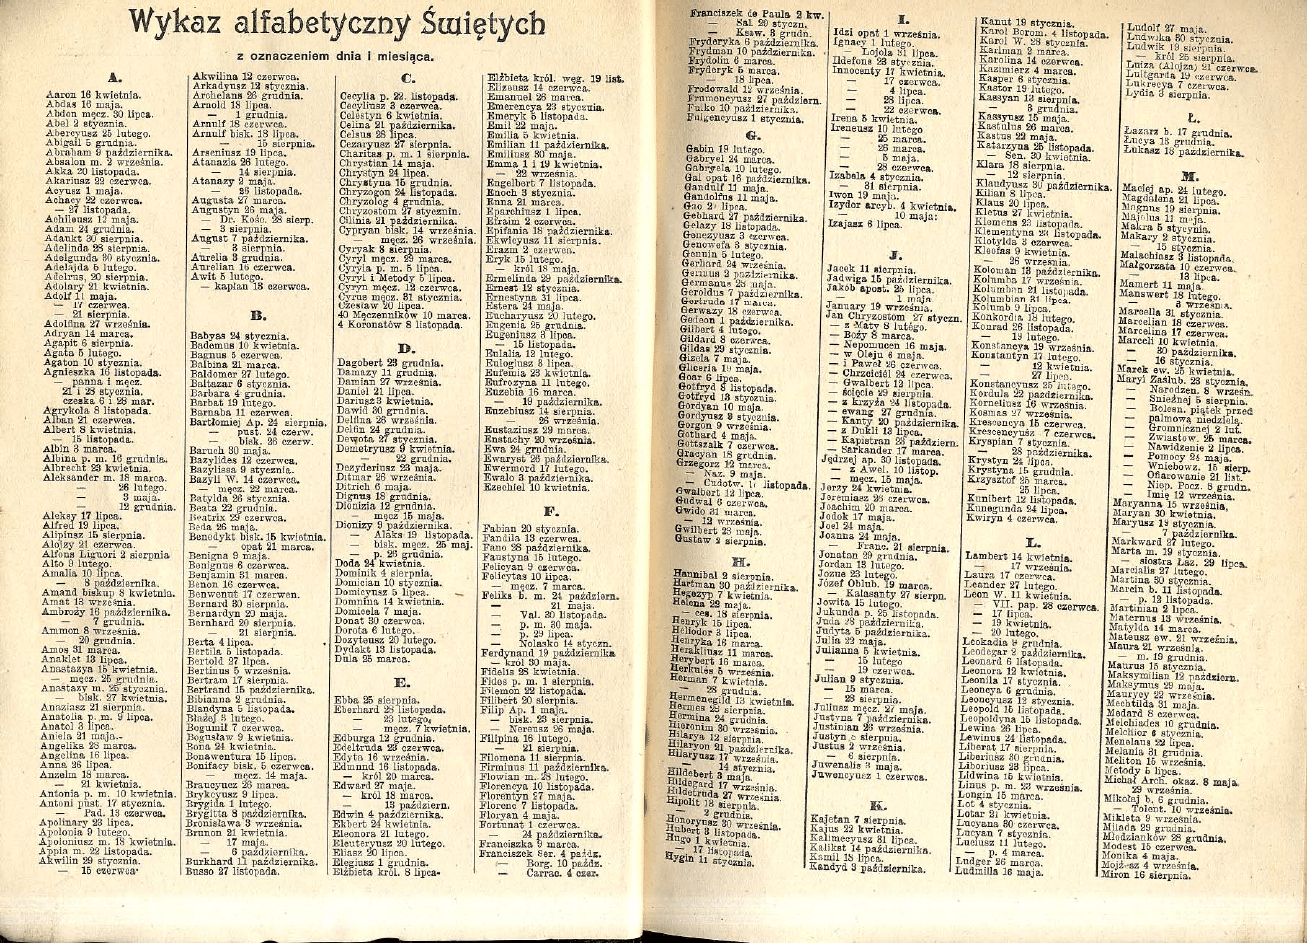 Wykaz alfabetyczny Świętych
z oznaczeniem dnia i miesiąca.
A.
Aaron 16 kwietnia.
Abdas 16 maja.
Abdon męcz. 30 lipca.
Abel 2 stycznia.
Abercyusz 25 lutego.
Abigail 5 grudnia.
Abraham 9 października.
Absalon m. 2 września.
Akka 20 listopada.
Akariusz 29 czerwca.
Acyusz 1 maja.
Achacy 22 czerwca.
— 27 listopada.
Achileusz 12 maja.
Adam 24 grudnia.
Adaukt 30 sierpnia.
Adelinda 28 sierpnia.
Adelgunda 30 stycznia.
Adelajda 5 lutego.
Adelrus, 20 sierpnia.
Adolary 21 kwietnia.
Adolf 11 maja.
— 17 czerwca.
— 21 sierpnia.
Adolfina 27 września.
Adryan 14 marca.
Agapit 6 sierpnia.
Agata 5 lutego.
Agaton 10 stycznia.
Agnieszka 16 listopada.
panna i męcz.
21 i 28 stycznia.
czeska 61 28 mar.
Agrykola 8 listopada.
Alban 21 czerwca.
Albert 8 kwietnia.
— 15 listopada.
Albin 3 marca.
Albina p. m. 16 grudnia.
Albrecht 23 kwietnia.
Aleksander m. 18 marca.
— 26 lutego.
— 3 maja.
— 12 grudnia.
Aleksy 17 lipca.
Alfred 19 lipca.
Alipiusz 15 sierpnia.
Alojzy 21 czerwca.
Alfons Liguori 2 sierpnia
Alto 9 lutego.
Amalia 10 lipca.
— 8 października.
Amand biskup 8 kwietnia.
Amat 13 września.
Ambroży 16 października.
— 7 grudnia.
Ammon 8 września.
— 20 grudnia.
Amos 31 marca.
Anaklet 13 lipca.
Anastazya 15 kwietnia.
— męcz. 25 grudnia.
Anastazy m. 25 stycznia.
— bisk. 27 kwietnia.
Anaziasz 21 sierpnia.
Anatolia p. m. 9 lipca.
Anatol 3 lipca.
Aniela 21 maja.
Angelika 28 marca.
Angelina 16 lipca.
Anna 26 lipca.
Anzelm 18 marca.
— 21 kwietnia.
Antonia p. m. 10 kwietnia.
Antoni pust. 17 stycznia.
— Pad. 13 czerwca.
Apolinary 23 lipca.
Apolonia 9 lutego.
Apoloniusz m. 18 kwietnia.
Appia m. 22 listopada.
Akwilin 29 stycznia.
— 15 czerwca.
Akwilina 12 czerwca.
Arkadyusz 12 stycznia.
Archelans 26 grudnia.
Arnold 18 lipca.
— 1 grudnia.
Arnulf 18 czerwca.
Arnulf bisk. 18 lipca.
— 15 sierpnia.
Arseniusz 19 lipca.
Atanazia 26 lutego.
— 14 sierpnia.
Atanazy 2 maja.
26 listopada.
Augusta 27 marca.
Augustyn 26 maja.
— Dr. Kośc. 28 sierp.
— 3 sierpnia.
August 7 października.
— 3 sierpnia.
Aurelia 3 grudnia.
Aurelian 16 czerwca.
Awit 5 lutego.
— kapłan 18 czerwca.
B.
Babyas 24 stycznia.
Bademus 10 kwietnia.
Bagnus 5 czerwca.
Balbina 21 marca.
Baldomer 27 lutego.
Baltazar 6 stycznia.
Barbara 4 grudnia.
Barbat 19 lutego.
Barnaba 11 czerwca.
Bartłomiej Ap. 24 sierpnia.
— pust. 24 czerw.
bisk. 26 czerw.
Baruch 30 maja.
Bazylides 12 czerwca.
Bazylissa 9 stycznia.
Bazyli W. 14 czerwca.
— męcz. 22 marca.
Batylda 26 stycznia.
Beata 22 grudnia.
Beatrix 29 czerwca.
Beda 26 maja.
Benedykt bisk. 15 kwietnia.
— opat 21 marca.
Benigna 9 maja.
Benignus 6 czerwca.
Benjamin 31 marca.
Benon 16 czerwca.
Benwenut 17 czerwca.
Bernard 30 sierpnia.
Bernardyn 20 maja.
Bernhard 20 sierpnia.
21 sierpnia.
Berta 4 lipca.
Bertila 5 listopada.
Bertold 27 lipca.
Bertinus 5 września.
Bertram 17 sierpnia.
Bertrand 15 października.
Bibianna 2 grudnia.
Blandyna 5 listopada.
Błażej 3 lutego.
Bogumił 7 czerwca.
Bogusław 9 kwietnia.
Bona 24 kwietnia.
Bonawentura 15 lipca.
Bonifacy bisk. 5 czerwca.
— męcz. 14 maja.
Braucyucz 26 marca.
Brykcyusz 9 lipca.
Brygida 1 lutego.
Brygitta 8 października.
Bronisława 3 września.
Brunon 21 kwietnia.
— 17 maja.
— 6 października.
Burkhard 11 października.
Busso 27 listopada.
C.
Cecylia p. 22. listopada.
Cecyliusz 3 czerwca.
Celestyn 6 kwietnia.
Celina 21 października.
Celsus 28 lipca.
Cezaryusz 27 sierpnia.
Charitas p. m. 1 sierpnia.
Chrystian 14 maja.
Chrystyn 24 lipca.
Chrystyna 15 grudnia.
Chryzogon 24 listopada.
Chryzolog 4 grudnia.
Chryzostom 27 stycznia.
Cilinia 21 października.
Cypryan bisk. 14 września.
męcz. 26 września.
Cyryak 8 sierpnia.
Cyryl męcz. 29 marca.
Cyryla p. m. 5 lipca.
Cyryl i Metody 5 lipca.
Cyryn męcz. 12 czerwca.
Cyrus męcz. 31 stycznia.
Czesław 20 lipca.
40 Męczenników 10 marca.
4 Koronatów 8 listopada.
D.
Dagobert 23 grudnia.
Damazy 11 grudnia.
Damian 27 września.
Daniel 21 lipca.
Dariusz 3 kwietnia.
Dawid 30 grudnia.
Delfina 26 września.
Delfin 24 grudnia.
Dewota 27 stycznia.
Demetryusz 9 kwietnia.
22 grudnia.
Dezyderiusz 23 maja.
Ditmar 26 września.
Ditrich 6 maja.
Dignus 18 grudnia.
Dionizia 12 grudnia.
— męcz 15 maja.
Dionizy 9 października.
— Alaks 19 listopada.
— bisk. męcz. 25 maj.
— p. 26 grudnia.
Doda 24 kwietnia.
Dominik 4 sierpnia.
Domician 10 stycznia.
Domicyusz 5 lipca.
Domnina 14 kwietnia.
Domicela 7 maja.
Donat 30 czerwca.
Dorota 6 lutego.
Dozyteusz 20 lutego.
Dydakt 13 listopada.
Dula 25 marca.
E.
Ebba 25 sierpnia.
Eberhard 28 listopada.
— 23 lutego.
— męcz. 7 kwietnia.
Edburga 12 grudnia.
Edeltruda 23 czerwca.
Edyta 16 września.
Edmund 16 listopada.
— król 20 marca.
Edward 27 maja.
— król 18 marca.
— 13 październ.
Edwin 4 października.
Ekbert 24 kwietnia.
Eleonora 21 lutego.
Eleuteryusz 20 lutego.
Eliasz 20 lipca.
Elegiusz 1 grudnia.
Elżbieta król. 8 lipca.
Elżbieta król. węg. 19 list.
Elizeusz 14 czerwca.
Emanuel 26 marca.
Emerencya 23 stycznia.
Emeryk 5 listopada.
Emil 22 maja.
Emilia 5 kwietnia.
Emilian 11 października.
Emiliusz 30 maja.
Emma 1 i 19 kwietnia.
— 22 września.
Engelbert 7 listopada.
Enoch 3 stycznia.
Enna 21 marca.
Eparchiusz 1 lipca.
Efraim 2 czerwca.
Epifania 18 października.
Ekwicyusz 11 sierpnia.
Erazm 2 czerwca.
Eryk 15 lutego.
— król 18 maja.
Ermelinda 29 października.
Ernest 12 stycznia.
Ernestyna 31 lipca.
Estera 24 maja.
Eucharyusz 20 lutego.
Eugenia 25 grudnia.
Eugeniusz 8 lipca.
— 15 listopada.
Eulalia 12 lutego.
Eulogiusz 8 lipca.
Eufemia 23 kwietnia.
Eufrozyna 11 lutego.
Euzebia 16 marca.
— 19 października.
Euzebiusz 14 sierpnia.
— 26 września.
Eustaziusz 29 marca.
Eustachy 20 września.
Ewa 24 grudnia.
Ewaryst 26 października.
Ewermord 17 lutego.
Ewalo 3 października.
Ezechiel 10 kwietnia.
F.
Fabian 20 stycznia.
Fandila 13 czerwca.
Fano 28 października.
Faustyna 15 lutego.
Felicyan 9 czerwca.
Felicytas 10 lipca.
— męcz. 7 marca.
Feliks b. m. 24 październ.
— 21 maja.
— Val. 20 listopada.
— p. m. 30 maja.
— p. 29 lipca.
— Nolasko 14 styczn.
Ferdynand 19 października
— król 30 maja.
Fidelis 28 kwietnia.
Fides p. m. 1 sierpnia.
Filemon 22 listopada.
Filibert 20 sierpnia.
Filip Ap. 1 maja.
— bisk. 23 sierpnia.
— Nereusz 26 maja.
Filipina 16 lutego.
— 21 sierpnia.
Filomena 11 sierpnia.
Firminus 11 października.
Flowian m. 28 lutego.
Florencya 10 listopada.
Florentyn 27 maja.
Florenc 7 listopada.
Floryan 4 maja.
Fortunat 1 czerwca.
— 24 października.
Franciszka 9 marca.
Franciszek Ser. 4 paźdz.
— Borg. 10 paźdz.
— Carrac. 4 czer.
Franciszek de Paula 2 kw.
— Sal. 29 styczn.
— Ksaw. 3 grudn.
Fryderyka 6 października.
Frydman 10 października.
Frydolin 6 marca.
Fryderyk 5 marca.
— 18 lipca.
Frodowald 12 września.
Frumencyusz 27 październ.
Fulko 10 października.
Fulgencyusz 1 stycznia.
G.
Gabin 19 lutego.
Gabryel 24 marca.
Gabryela 10 lutego.
Gal opat 16 października.
Gandulf 11 maja.
Gandolfina 11 maja.
Gebhard 27 października.
Gelazy 18 listopada.
Genezyusz 3 czerwca.
Genowefa 3 stycznia.
Gerhard 24 września.
Germus 2 października.
Germanus 28 maja.
Geroldus 7 października.
Gertruda 17 marca.
Gerwazy 18 czerwca.
Gedeon 1 października.
Gilbert 4 lutego.
Gildard 8 czerwca.
Gildas 29 stycznia.
Gizela 7 maja.
Gliceria 19 maja.
Goar 6 lipca.
Gotfryd 8 listopada.
Gotfryd 13 stycznia.
Gordyan 10 maja.
Gorgon 9 września.
Gothard 4 maja.
Gottszalk 7 czerwca.
Gracyan 18 grudnia.
Grzegorz 12 marca.
— Naz. 9 maja.
— Cudotw. 17 listopada.
Gwalbert 12 lipca.
Gudwal 6 czerwca.
Gwido 31 marca.
— 12 września.
Gwilbert 28 maja.
Gustaw 2 sierpnia.
H.
Hannibal 2 sierpnia.
Hartman 30 października.
Hegezyp 7 kwietnia.
Helena 22 maja.
— ces. 18 sierpnia.
Henryk 15 lipca.
Heliodor 3 lipca.
Henryka 16 marca.
Herakliusz 11 marca.
Herybert 16 marca.
Herkules 5 września.
Herman 7 kwietnia.
28 grudnia.
Hermenegild 13 kwietnia.
Hermes 28 sierpnia.
Hermina 24 grudnia.
Hieronim 30 września.
Hilarya 12 sierpnia.
Hilaryon 21 października.
Hilaryusz 17 września.
— 14 stycznia.
Hildebert 3 maja.
Hildegard 17 września.
Hildetruda 27 września.
Hipolit 18 sierpnia.
— 2 grudnia.
Honoryusz 30 września.
Hubert 3 listopada.
Hugo 1 kwietnia.
— 17 listopada.
Hygin 11 stycznia.
I.
Idzi opat 1 września.
Ignacy 1 lutego.
— Lojola 31 lipca.
Ildefons 23 stycznia.
Innocenty 17 kwietnia.
— 17 czerwca.
— 4 lipca.
— 28 lipca.
— 22 czerwca.
Irena 5 kwietnia.
Ireneusz 10 lutego
— 25 marca.
— 26 marca.
— 5 maja.
— 28 czerwca.
Izabela 4 stycznia.
— 31 sierpnia.
Iwon 19 maja.
Izyder arcyb. 4 kwietnia.
— 10 maja.
Izajasz 6 lipca.
J.
Jacek 11 sierpnia.
Jadwiga 15 października.
Jakób apost. 25 lipca.
— 1 maja
January 19 września.
Jan Chryzostom 27 styczn.
— z Maty 8 lutego.
— Boży 8 marca.
— Nepomucen 16 maja.
— w Oleju 6 maja.
— i Paweł 26 czerwca.
— Chrzciciel 24 czerwca.
— Gwalbert 12 lipca.
— ścięcie 29 sierpnia.
— z krzyża 24 listopada.
— ewang 27 grudnia.
— Kanty 20 października.
— z Dukli 13 lipca.
— Kapistran 23 październ.
— Sarkander 17 marca.
Jędrzej ap. 30 listopada.
— z Awel. 10 listop.
— męcz. 15 maja.
Jerzy 24 kwietnia.
Jeremiasz 26 czerwca.
Joachim 20 marca.
Jodok 17 maja.
Joel 24 maja.
Joanna 24 maja.
— Franc. 21 sierpnia.
Jonatan 29 grudnia.
Jordan 13 lutego.
Jozue 23 lutego.
Józef Oblub. 19 marca.
— Kalasanty 27 sierpn.
Jowita 15 lutego.
Jukunda p. 25 listopada.
Juda 28 października.
Judyta 5 października.
Julia 22 maja.
Julianna 5 kwietnia.
— 15 lutego
— 19 czerwca.
Julian 9 stycznia.
— 15 marca.
— 28 sierpnia.
Juliusz męcz. 27 maja.
Justyna 7 października.
Justinian 26 września.
Justyn 5 sierpnia.
Justus 2 września.
— 6 sierpnia.
Juwenalis 3 maja.
Juwencyusz 1 czerwca.
K.
Kajetan 7 sierpnia.
Kajus 22 kwietnia.
Kalimecyusz 31 lipca.
Kalikat 14 października.
Kamil 18 lipca.
Kandyd 3 października.
Kanut 19 stycznia.
Karol Borom. 4 listopada.
Karol W. 28 stycznia.
Kariman 2 marca.
Karolina 14 czerwca.
Kazimierz 4 marca.
Kasper 6 stycznia.
Kastor 19 lutego.
Kassyan 13 sierpnia.
3 grudnia.
Kassyusz 15 maja.
Kastulus 26 marca.
Kastus 22 maja.
Katarzyna 25 listopada.
— Sen. 30 kwietnia.
Klara 18 sierpnia.
— 12 sierpnia.
Klaudyusz 30 października.
Kilian 8 lipca.
Klaus 20 lipca.
Kletus 27 kwietnia.
Klemens 23 listopada.
Klementyna 23 listopada.
Klotylda 3 czerwca.
Kleofas 9 kwietnia.
— 26 września.
Koloman 13 października.
Kolumba 17 września.
Kolumban 21 listopada.
Kolumbian 31 lipca.
Kolumb 9 lipca.
Konkordia 18 lutego.
Konrad 26 listopada.
— 19 lutego.
Konstancya 19 września.
Konstantyn 17 lutego.
— 12 kwietnia.
— 27 lipca.
Konstancyusz 25 lutego.
Kordula 22 października.
Korneliusz 16 września.
Kosmas 27 września.
Krescencya 15 czerwca.
Krescencyusz 7 czerwca.
Kryspian 7 stycznia.
— 28 października.
Krystyn 24 lipca.
Krystyna 15 grudnia.
Krzysztof 25 marca.
— 25 lipca.
Kunibert 12 listopada.
Kunegunda 24 lipca.
Kwiryn 4 czerwca.
L.
Lambert 14 kwietnia.
— 17 września.
Laura 17 czerwca.
Leander 27 lutego.
Leon W. 11 kwietnia.
— VII. pap. 28 czerwca.
— 17 lipca.
— 19 kwietnia.
— 20 lutego.
Leokadia 9 grudnia.
Leodegar 2 października.
Leonard 6 listopada.
Leonila 17 stycznia.
Leoncya 6 grudnia.
Leoncyusz 12 stycznia.
Leopold 15 listopada.
Leopoldyna 15 listopada.
Lewina 26 lipca.
Lewinus 24 listopada.
Liberat 17 sierpnia.
Liberiusz 30 grudnia.
Liboriusz 23 lipca.
Lidwina 15 kwietnia.
Linus p. m. 23 września.
Longin 15 marca.
Lot 4 stycznia.
Lotar 21 kwietnia.
Lucyana 30 czerwca.
Lucyan 7 stycznia.
Luciusz 11 lutego.
— p. 4 marca.
Ludger 26 marca.
Ludmilla 16 maja.
Ludolf 27 maja.
Ludwika 30 stycznia.
Ludwik 19 sierpnia.
— król 25 sierpnia.
Luiza (Alojza) 21 czerwca.
Luitgarda 19 czerwca.
Lukrecya 7 czerwca.
Lydia 3 sierpnia.
Ł.
Łazarz b. 17 grudnia.
Łucya 13 grudnia.
Łukasz 18 października.
M.
Maciej ap. 24 lutego.
Magdalena 21 lipca.
Magnus 19 sierpnia.
Majolus 11 maja.
Makra 5 stycznia.
Makary 2 stycznia.
— 15 stycznia.
Malachiasz 3 listopada.
Małgorzata 10 czerwca.
— 13 lipca.
Mamert 11 maja.
Manswert 18 lutego.
— 3 września.
Marcella 31 stycznia.
Marcelian 18 czerwca.
Marcelina 17 czerwca.
Marceli 10 kwietnia.
— 30 października.
— 16 stycznia.
Marek ew. 25 kwietnia.
Maryi Zaślub. 23 stycznia.
— Narodzen. 8 wrześn.
— Śnieżnej 5 sierpnia.
— Bolesn. piątek przed
— palmową niedzielą.
— Gromnicznej 2 lut.
— Zwiastow. 25 marca.
— Nawidzenie 2 lipca.
— Pomocy 24 maja.
— Wniebowz. 15 sierp.
— Ofiarowanie 21 list.
— Niep. Pocz. 8 grudn.
— Imię 12 września.
Maryanna 15 września.
Maryan 30 kwietnia.
Maryusz 19 stycznia.
— 7 października.
Markward 27 lutego.
Marta m. 19 stycznia.
— siostra Łaz. 29 lipca.
Marcialis 27 lutego.
Martina 30 stycznia.
Marcin b. 11 listopada.
— p. 12 listopada.
Martinian 2 lipca.
Maternus 13 września.
Matylda 14 marca.
Mateusz ew. 21 września.
Maura 21 września.
— m. 19 grudnia.
Maurus 15 stycznia.
Maksymilian 12 paźdzern.
Maksymus 29 maja.
Maurycy 22 września.
Mechtilda 31 maja.
Medard 8 czerwca.
Melchiades 10 grudnia.
Melchior 6 stycznia.
Menelaus 22 lipca.
Melania 31 grudnia.
Meliton 15 września.
Metody 5 lipca.
Michał Arch. okaz. 8 maja.
— 29 września.
Mikołaj b. 6 grudnia.
— Tolent. 10 września.
Mikleta 9 września.
Milada 29 grudnia.
Młodzianków 28 grudnia.
Modest 15 czerwca.
Monika 4 maja.
Mojżesz 4 września.
Miron 16 sierpnia.